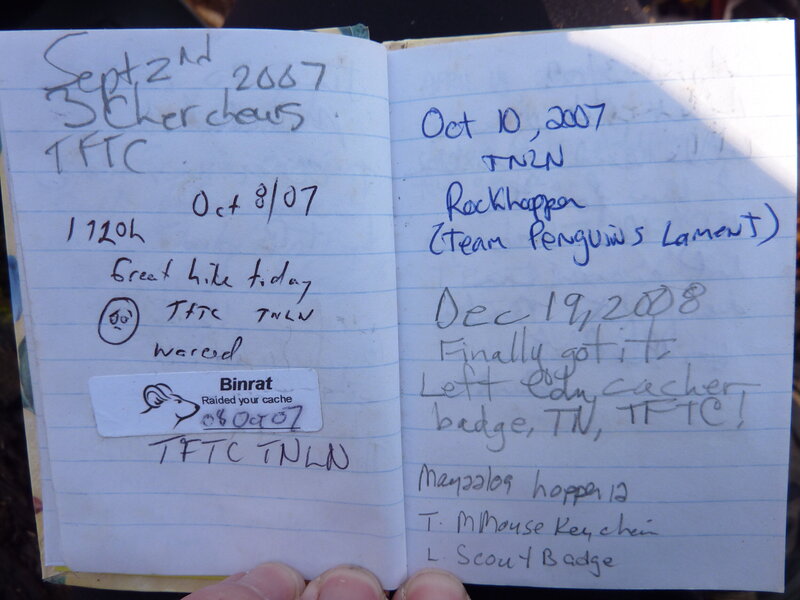 Sept 2nd 2007
3 Chercheurs
TFTC
Oct 8/07
1720h
Great hike today
TFTC TNLN
Binrat
Raided your cache
08 Oct 07
TFTC TNLN
Oct 10, 2007
TNLN
Rockhopper
(Team Penguin's Lament)
Dec 19, 2008
Finally got it.
Left cacher
badge, TN, TFTC!
May22/09 hopper12
T. MMouse Keychain
L. Scout Badge